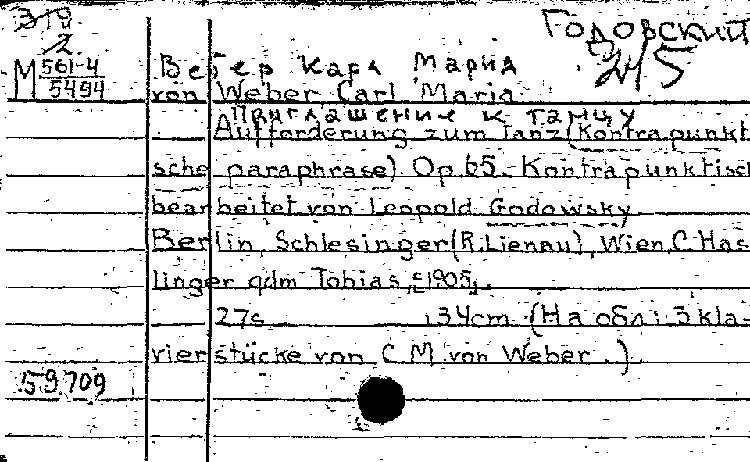 Годовский
2/15
М 561-4
5494
Вебер Карл Мария
von Weber Carl Maria
Приглашение к танцу
Aufforderung zum Tanz (Kontrapunkt
sche paraphrase) Op. 65. Kontrapunktisc
bearbeitet von Leopold Godowsky
Berlin, Schlesinger (R. Lienau), Wien, C. Has
linger qdm Tobias, [1905].
27s 34cm (На обл: 3 kla-
vierstücke von C. M. von Weber.)
59709